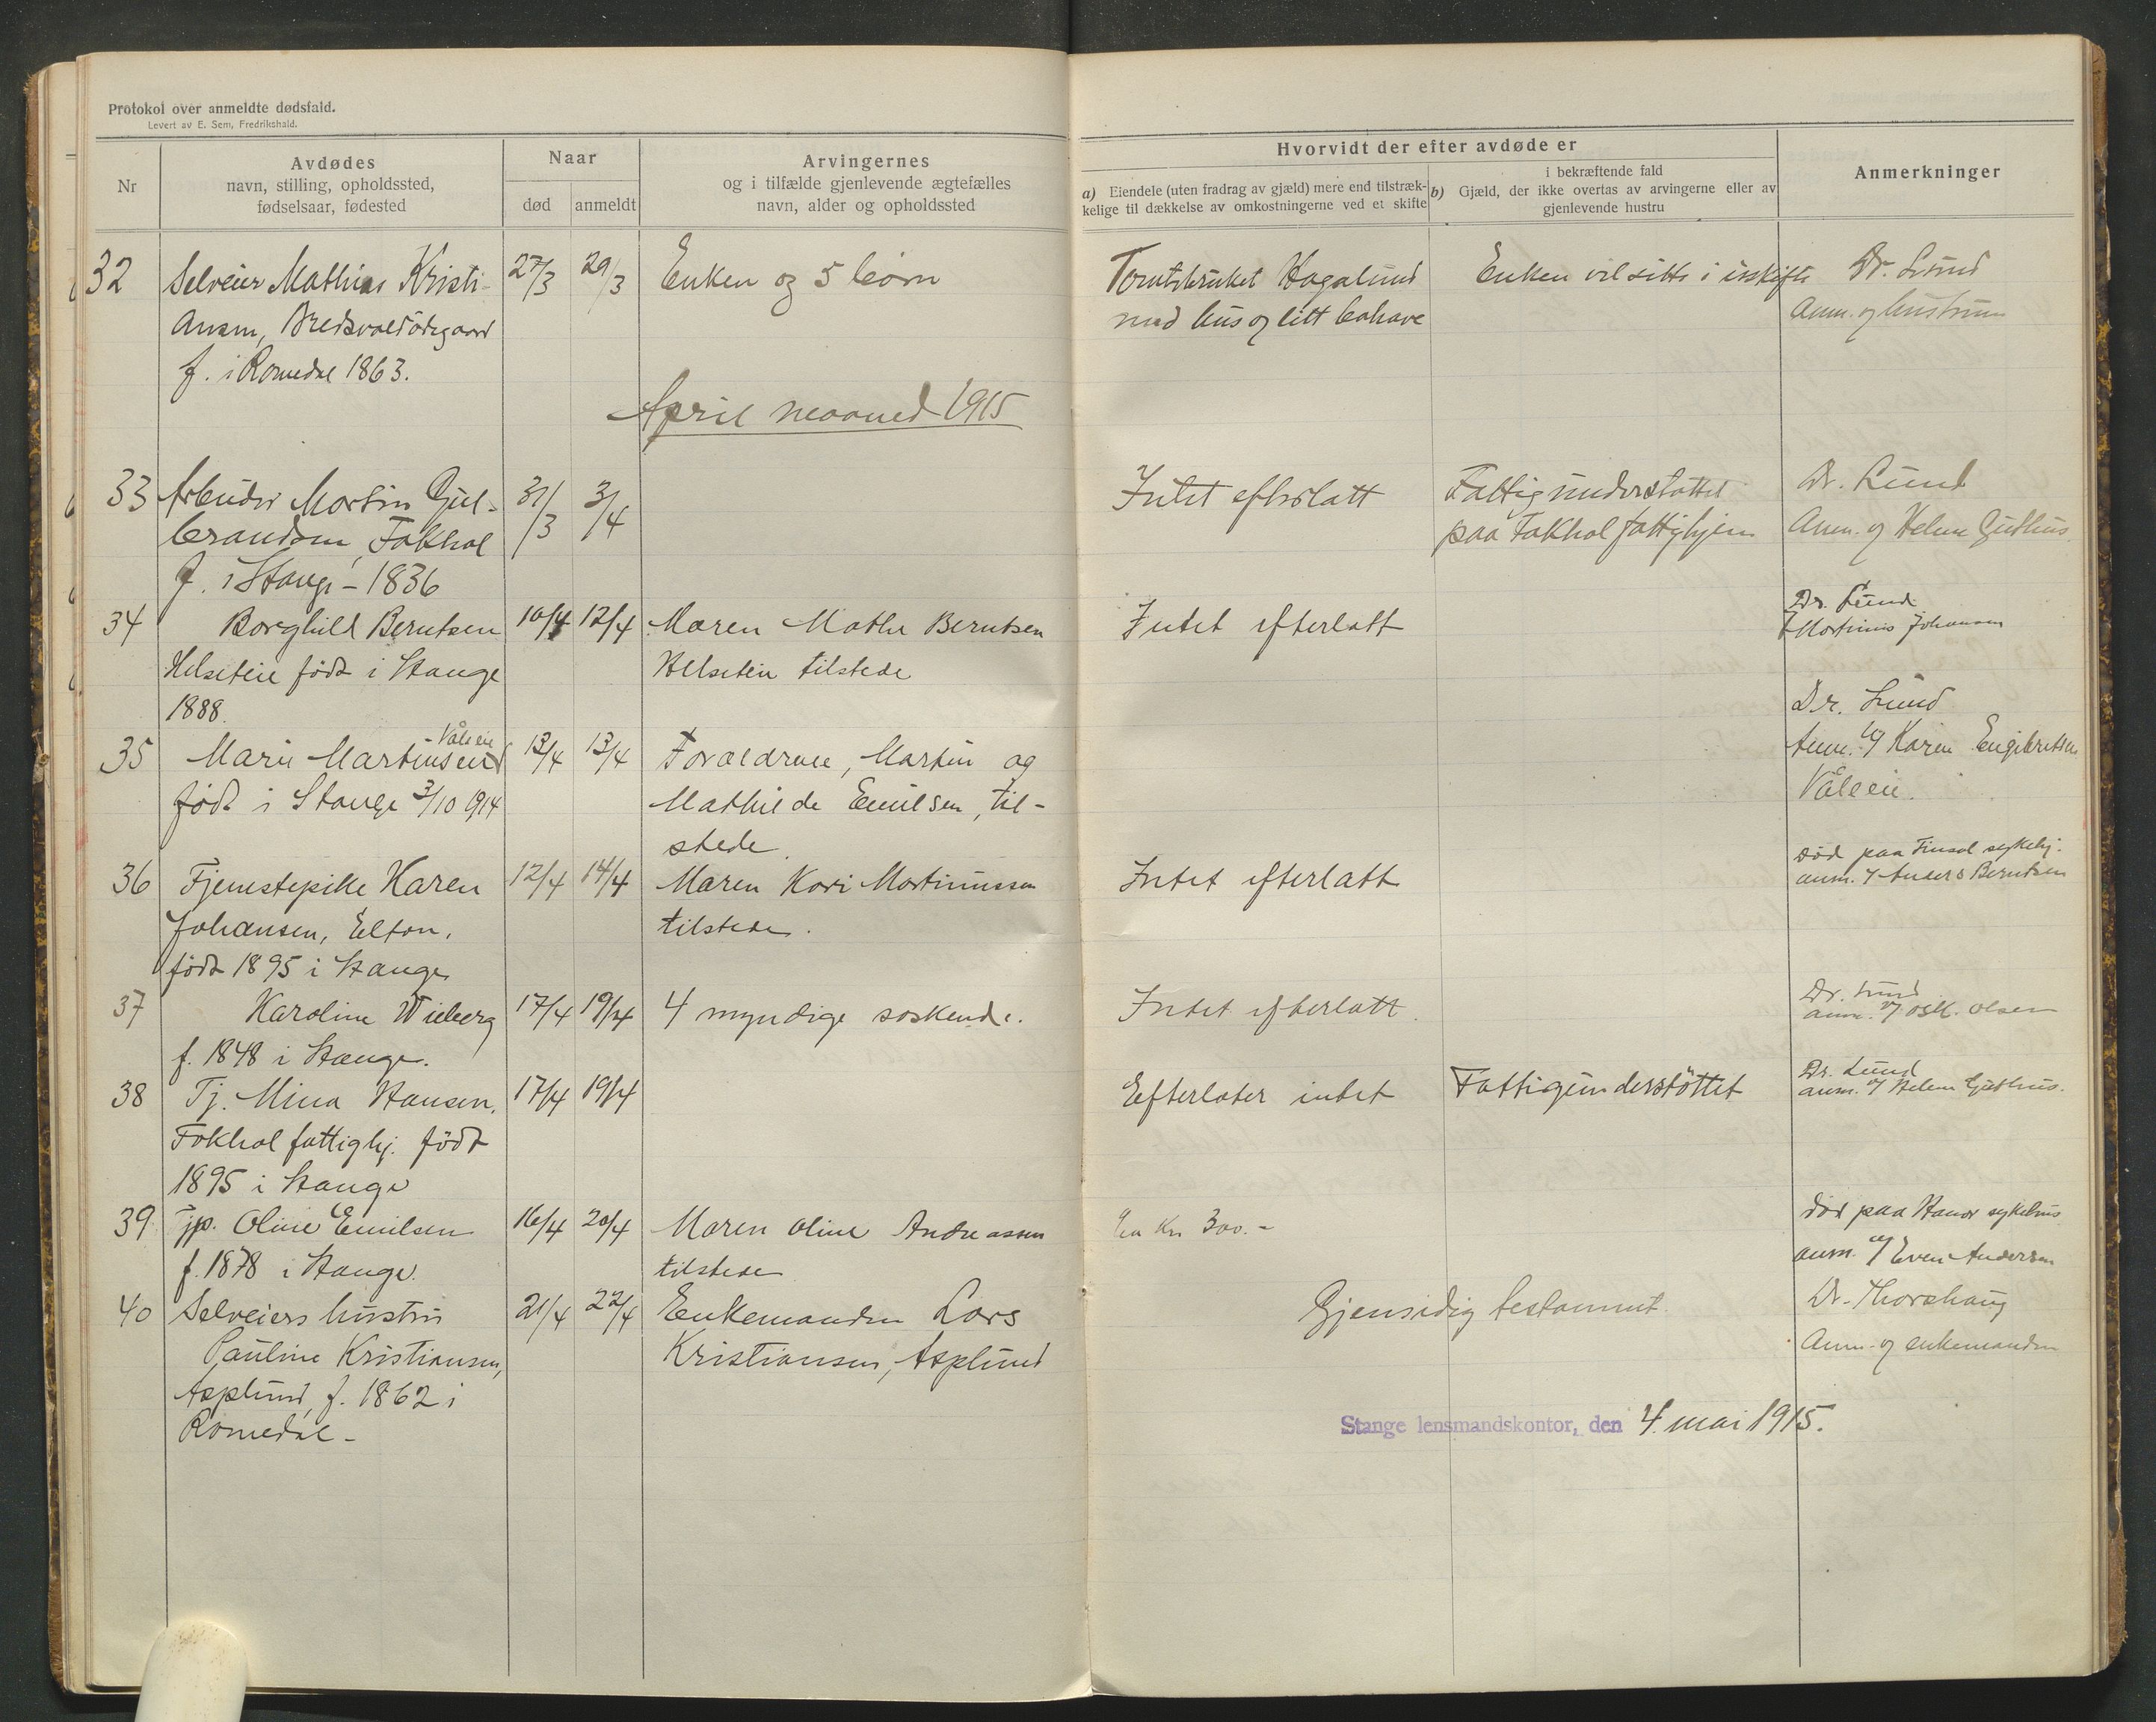 Protokol over anmeldte dødsfald.
Levert av E. Sem, Fredrikshald.
Nr
Avdødes
navn, stilling, opholdssted,
fødselsaar, fødested
Naar
død
anmeldt
Arvingernes
og i tilfælde gjenlevende ægtefælles
navn, alder og opholdssted
Hvorvidt der efter avdøde er
a) Eiendele (uten fradrag av gjæld) mere end tilstræk-
kelige til dækkelse av omkostningerne ved et skifte
i bekræftende fald
b) Gjæld, der ikke overtas av arvingerne eller av
gjenlevende hustru
Anmerkninger
32
Selveier Mathias Kristi-
ansen, Bredvoldødegaard
f. i Romedal 1863.
27/3
29/3
Enken og 5 børn
Tomtebruket Hagalund
med hus og litt bohave
Enken vil sitte i uskifte
Dr. Lund
Anm. av hustruen
April maaned 1915
33
Arbeider Martin Gul-
brandsen, Fokhol
f. i Stange - 1836
31/3
3/4
Intet efterlatt
Fattigunderstøttet
paa Fokhol fattighjem
Dr. Lund
Anm. av Helene Guthus
34
Borghild Berntsen
Helseteie født i Stange
1888.
10/4
12/4
Maren Mathea Berntsen
Helseteie tilstede
Intet efterlatt
Dr. Lund
Martinus Johansen
35
Marie Martinsen Våleeie
født i Stange 3/10 1914
13/4
13/4
Forældrene, Martin og
Mathilde Emilsen, til-
stede.
Dr. Lund
Anm. av Karen Engebretsen
Våleeie.
36
Tjenestepike Karen
Johansen, Elton,
født 1895 i Stange
12/4
14/4
Maren Kari Martinussen
tilstede.
Intet efterlatt
død paa Finsal sykehj.
anm. av Anders Berntsen
37
Karoline Wieberg
f. 1848 i Stange.
17/4
19/4
4 myndige søskende.
Intet efterlatt.
Dr. Lund
anm. av Osk. Olsen
38
Tj. Mina Hansen,
Fokhol fattighj. født
1895 i Stange
17/4
19/4
Efterlater intet
Fattigunderstöttet
Dr. Lund
anm. av Helene Guthus.
39
Tjp. Oline Emilsen
f. 1878 i Stange.
16/4
20/4
Maren Oline Andreassen
tilstede
Ca Kr 300.-
død paa Hamar sykehus
anm. av Even Andersen
40
Selveiers hustru
Pauline Kristiansen,
Asplund, f. 1862 i
Romedal -
21/4
22/4
Enkemanden Lars
Kristiansen, Asplund
Gjensidig testament.
Dr. Thorshaug
Anm. av enkemanden
Stange lensmandskontor, den 4. mai 1915.